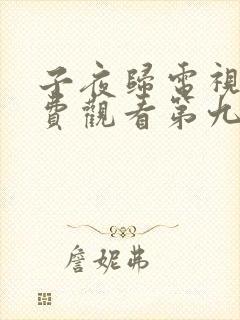 子夜歸電視
費觀看第九
詹妮弗